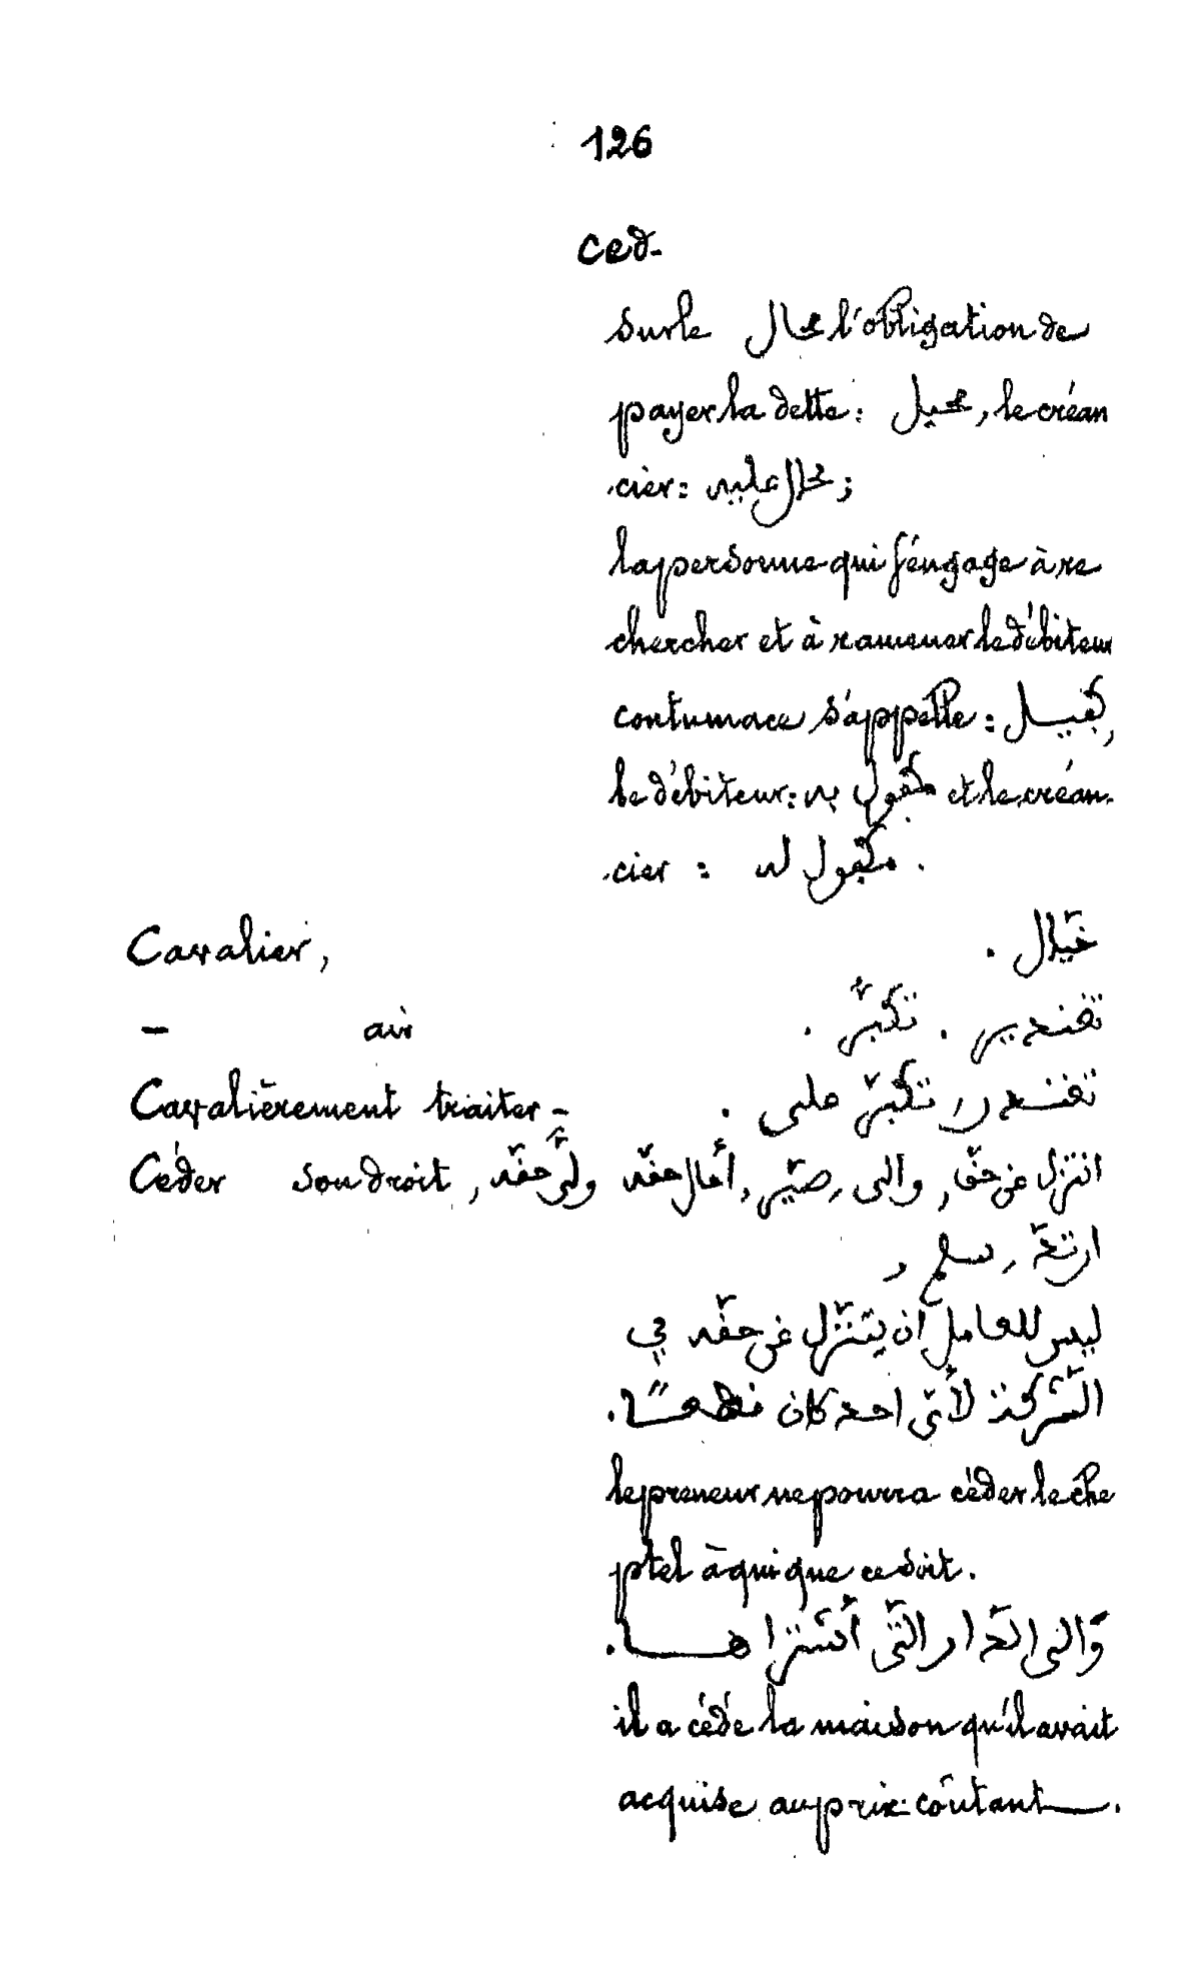 126
ced-
sur le محال l'obligation de
payer la dette: محيل, le créan
cier: محال عليه;
la personne qui s'engage à re
chercher et à ramener le débiteur
contumace s'appelle: كفيل,
le débiteur: مكفول به et le créan-
cier : مكفول له.
Cavalier, خيّال.
— air تكبّر.
Cavalièrement traiter - تكبّر على.
Céder son droit, انتزل عن حقّ, والى, صيّر, أحال حقّه ولّى حقّه,
ليس للعامل أن يتنزّل عن حقّه في
الشّركة لأيّ احد كان قطعًا.
le preneur ne pourra céder le che
ptel à qui que ce soit.
والى الدّار الّتي أشتراها.
il a cédé la maison qu'il avait
acquise au prix coûtant.